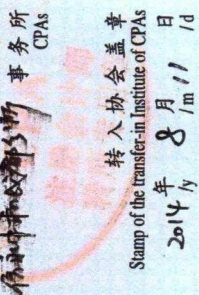 事务所
CPAs
转入协会盖章
Stamp of the transfer-in Institute of CPAs
2014年 8月 11日
/y /m /d